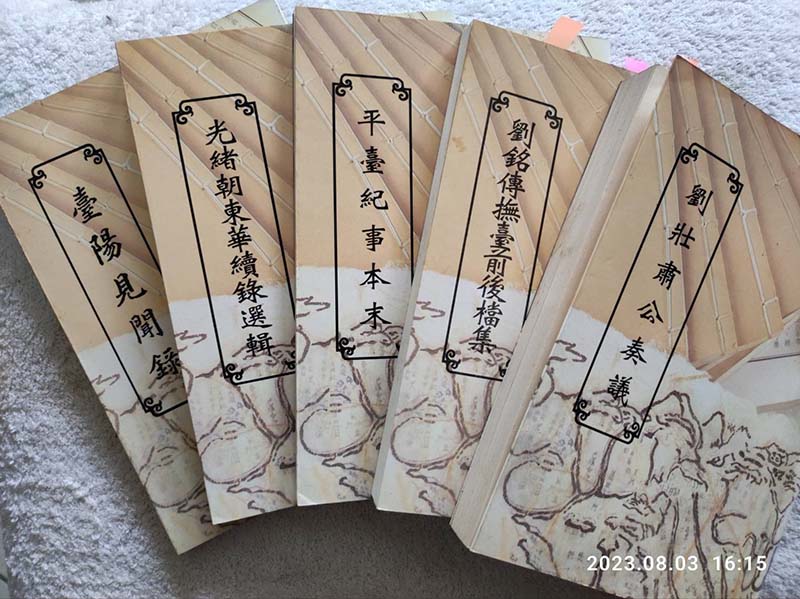 臺陽見聞錄
光緒朝東華續錄選輯
平臺紀事本末
劉銘傳撫臺前後檔集
劉壯肅公奏議
2023.08.03 16:15